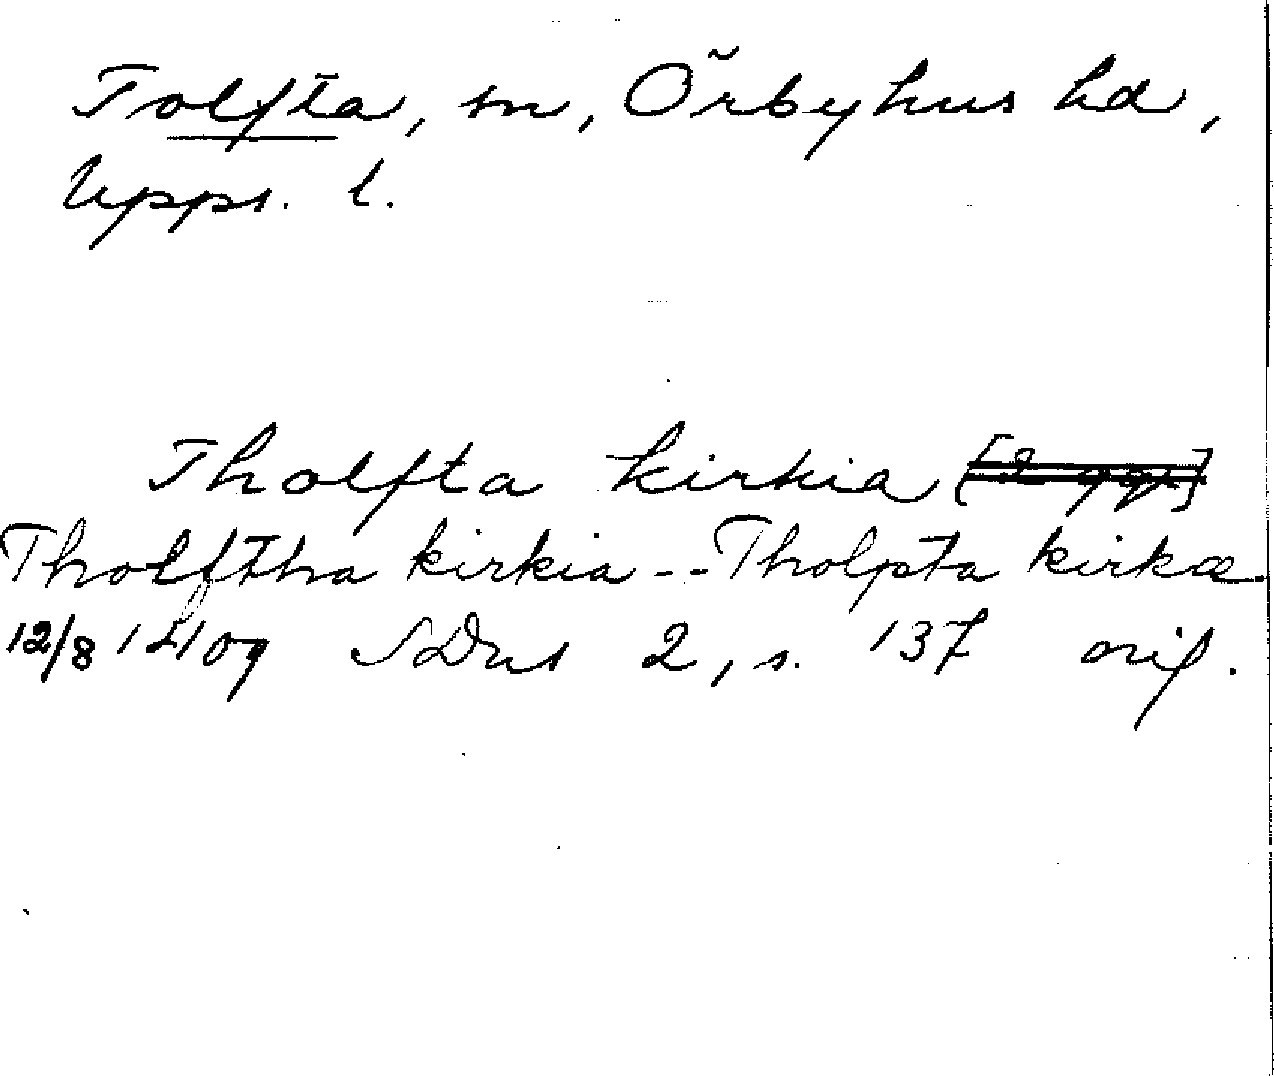 Tolfta, sn, Örbyhus hd,
Upps. l.
Tholfta kirkia [2 ggr]
Tholftha kirkia -- Tholpta kirkæ
12/8 1409 SDns 2, s. 137 orig.